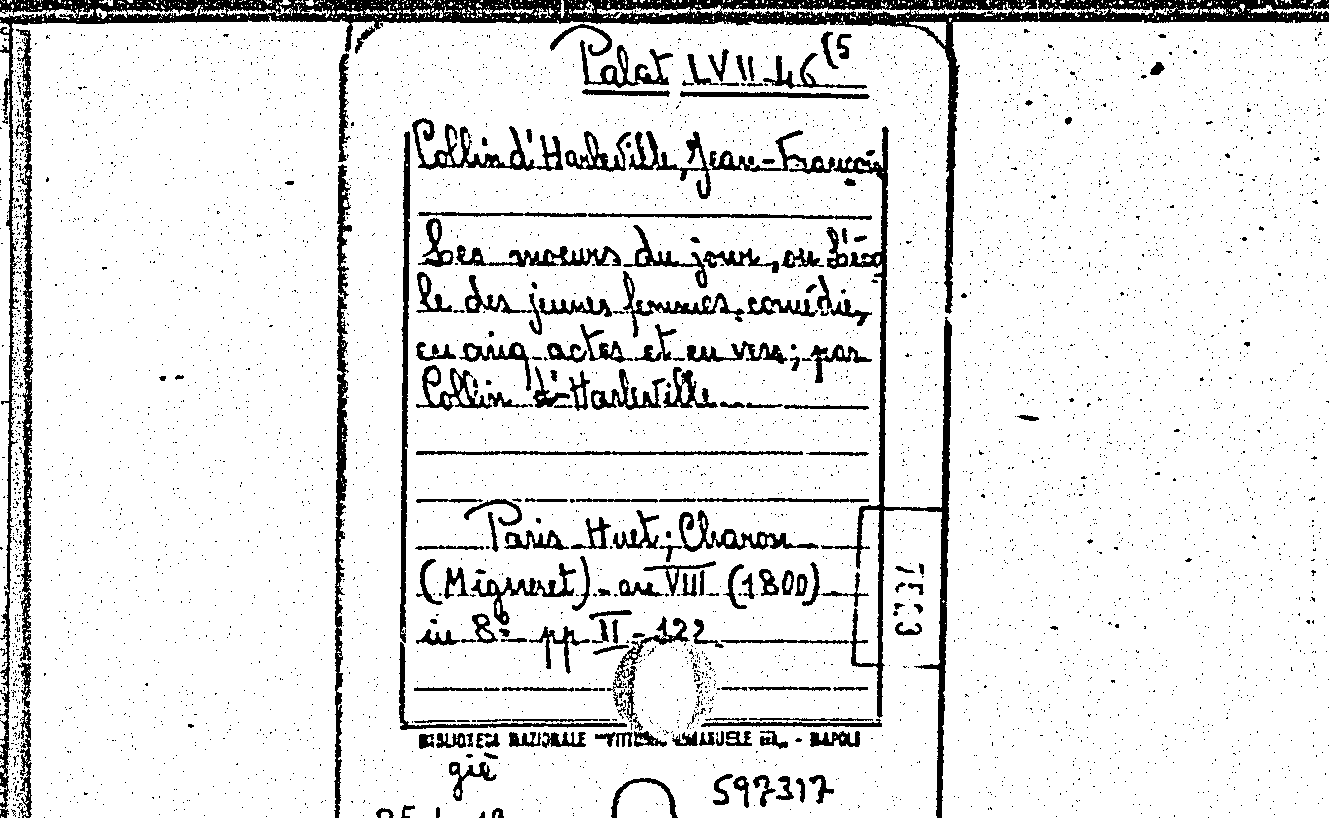 Palat LVII 46 (5
Collin d'Harleville, Jean-François
Les moeurs du jour, ou L'éco
le des jeunes femmes, comédie,
en cinq actes et en vers; par
Collin d'Harleville
Paris Huet; Charon
(Migneret) - an VIII (1800)
in 8º pp II - 122
BIBLIOTECA NAZIONALE "VITTORIO EMANUELE III" - NAPOLI
già
597317